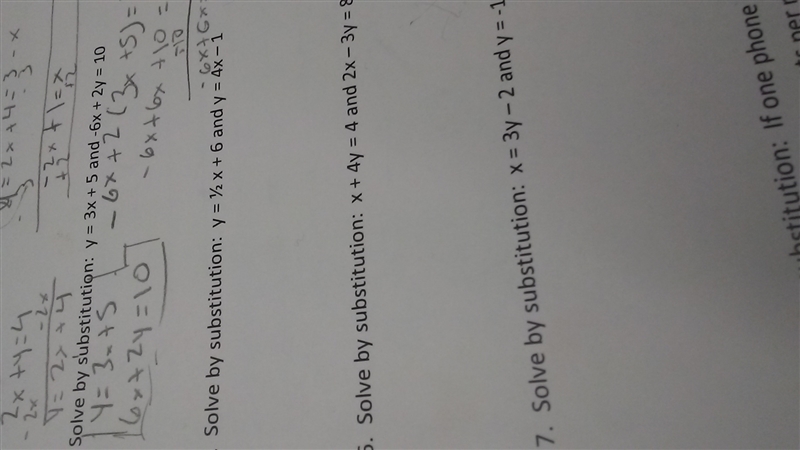 2x+y=4
y = 2x+4 = 3-x
-2x -2x - 3 3
y = 2x + 4 -2x+1=x
+2 +2
Solve by substitution: y = 3x + 5 and -6x + 2y = 10
y = 3x+5 -6x+2(3x+5)=
6x+2y=10 -6x+6x+10=
-10
-6x+6x=
Solve by substitution: y = ½ x + 6 and y = 4x – 1
6. Solve by substitution: x + 4y = 4 and 2x – 3y = 8
7. Solve by substitution: x = 3y – 2 and y = -1
bstitution: If one phone